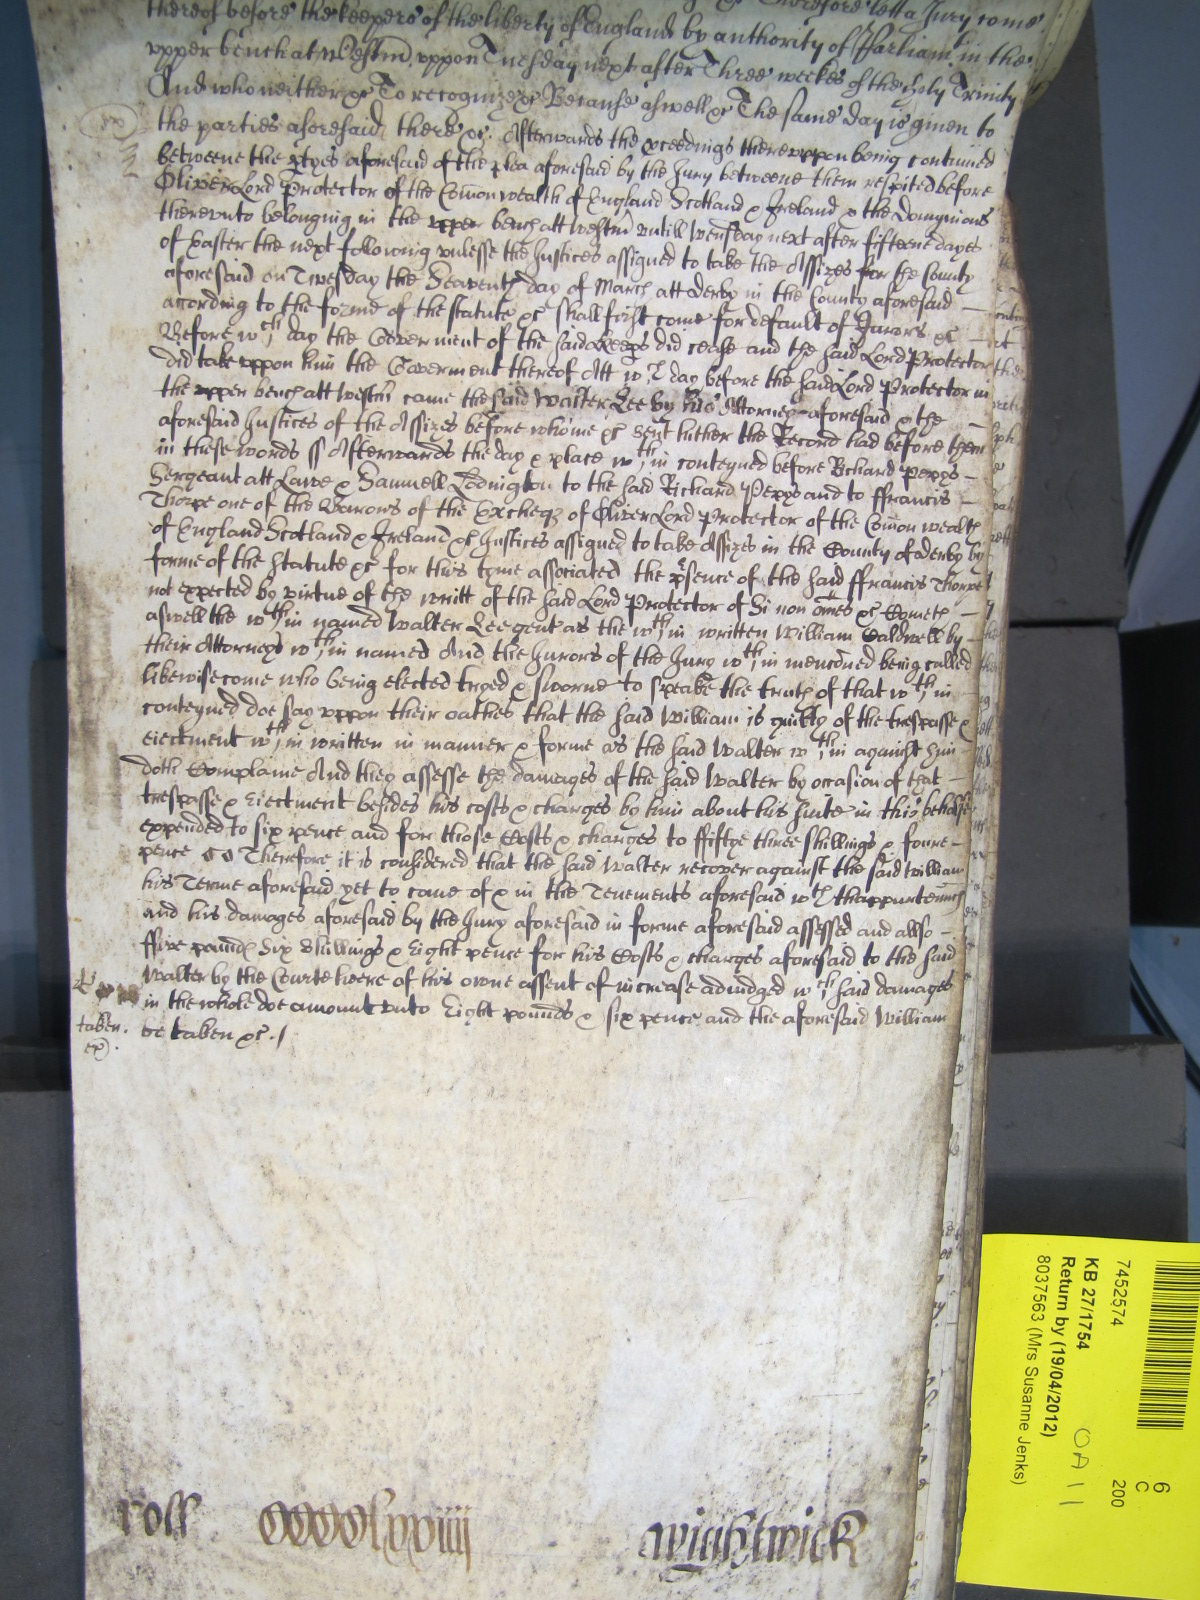 thereof before the keepers of the liberty of England by authority of Parliamt in the
upper bench at Westm̄ uppon Tuesday next after Three weekes of the holy Trinity
And who neither &c To recognize &c Because aswell &c The same day is given to
the parties aforesaid there &c. Afterwards the ꝓceedings thereuppon being continued
betweene the ꝑtyes aforesaid of the plea aforesaid by the Jury betweene them respited before
Oliver Lord Protector of the Com̄onwealth of England Scotland & Ireland & the Dominions
thereunto belonging in the upper bench att Westm̄ untill Wensday next after fifteene dayes
of Easter the next following unlesse the Justices assigned to take the Assizes for the County
aforesaid on Twesday the Seaventh day of March att Derby in the County aforesaid
according to the forme of the statute &c shall first come for default of Jurors &c
Before wch day the Goverment of the said Keeps did cease and the said Lord Protector
did take uppon him the Goverment thereof Att wch day before the said Lord Protector in
the upper bench att Westm̄ came the said Walter Lee by his Attorney aforesaid & the
aforesaid Justices of the Assizes before whome &c sent hither the Record had before them
in these words ss Afterwards the day & place wthin conteyned before Richard Pepys
Sergeant att Lawe & Samuell Ledington to the said Richard Pepys and to ffrancis
Thorpe one of the Barons of the Excheqȝ of Oliver Lord Protector of the Com̄on wealth
of England Scotland & Ireland &c Justices assigned to take Assizes in the County of Derby by
forme of the Statute &c for this tyme associated the pͬsence of the said ffrancis Thorpe
not expected by virtue of the writt of the said Lord Protector of Si non om̄es &c Cometh
aswell the wthin named Walter Lee gent as the wthin written William Caldwell by
their Attorneys wthin named And the Jurors of the Jury wthin menc̄oned being called
likewise come who being elected tryed & sworne to speake the truth of that wthin
conteyned doe say uppon their oathes that the said William is guilty of the trespasse &
eiectment wthin written in manner & forme as the said Walter wthin against him
doth Complaine And they assesse the damages of the said Walter by occasion of that
trespasse & Eiectment besides his costs & charges by him about his suite in this behalfe
expended to six pence and for those Costs & charges to ffiftye three shillings & foure
pence Therefore it is considered that the said Walter recover against the said William
his Terme aforesaid yet to come of & in the Tenements aforesaid wth thappurtenn̄cs
and his damages aforesaid by the Jury aforesaid in forme aforesaid assessed and also
ffive pounds Six Shillings & Eight pence for his Costs & charges aforesaid to the said
Walter by the Courte heere of his owne assent of increase adiudged wch said damages
in the whole doe amount unto Eight pounds & six pence and the aforesaid William
taken.
be taken &c. /
roll CCCClxxiiii
Wightwick
7452574
KB 27/1754
Return by (19/04/2012)
8037563 (Mrs Susanne Jenks)
OA 11
6
C
200